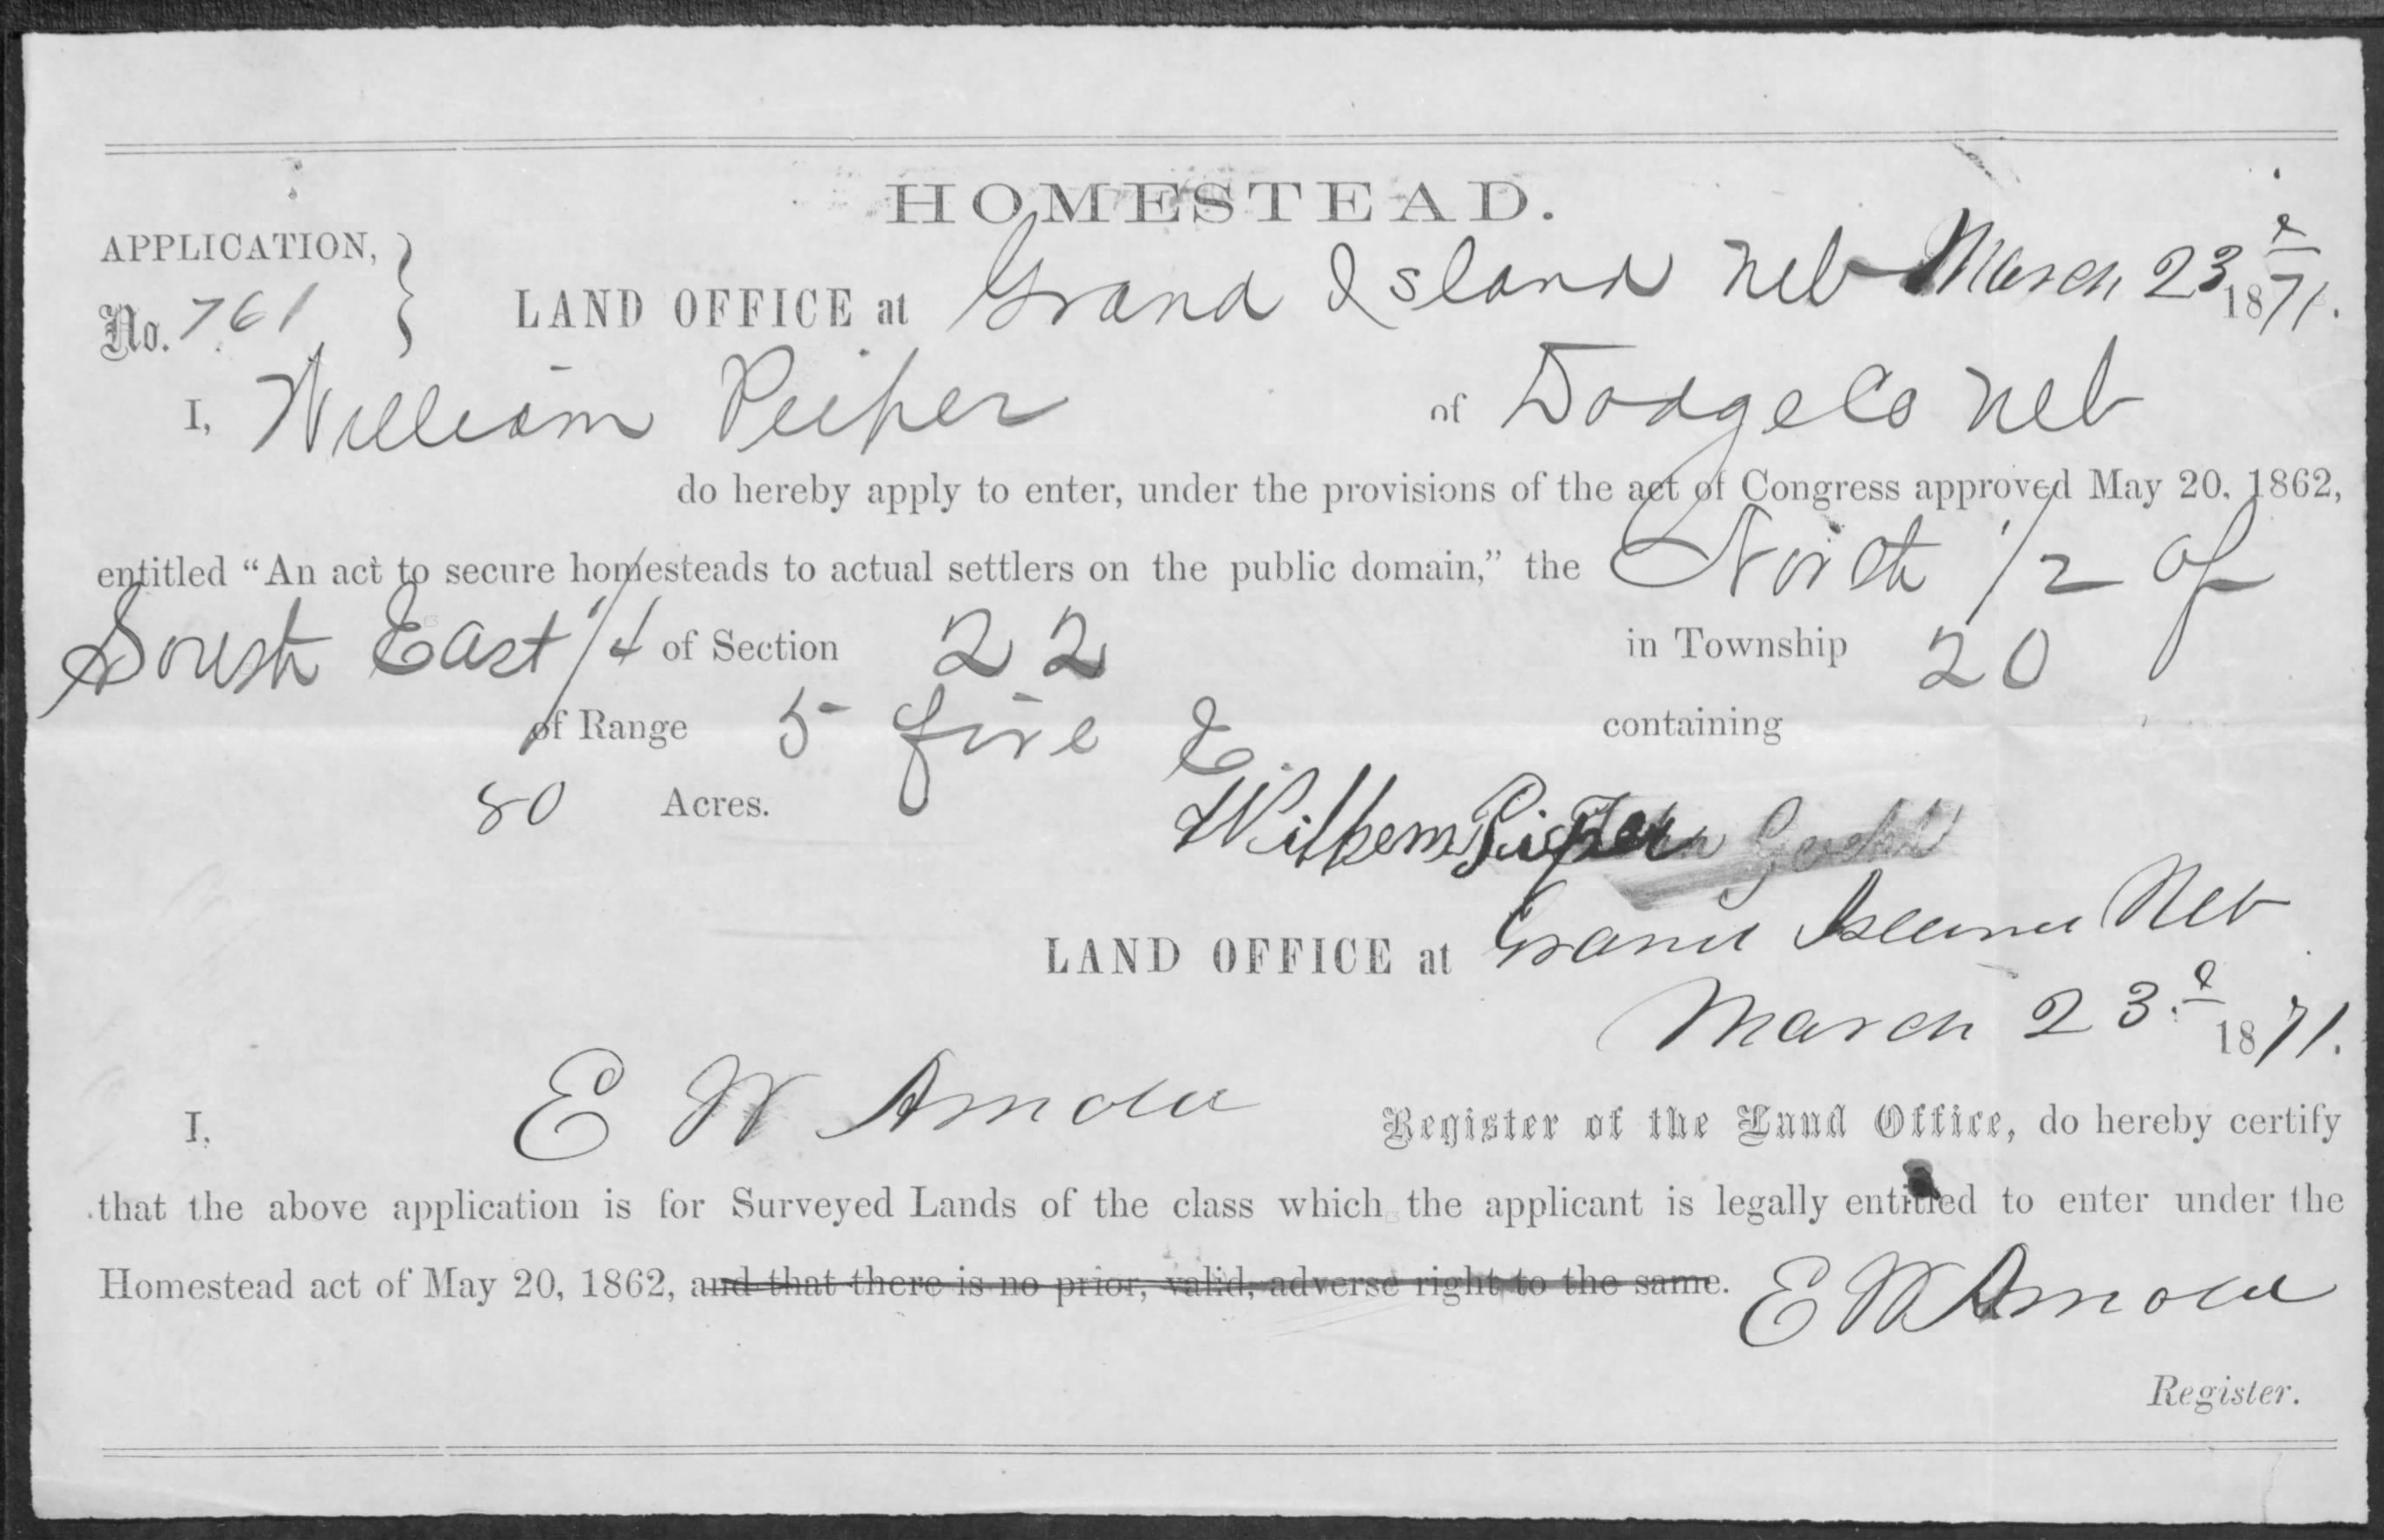 HOMESTEAD.
APPLICATION,
No. 761
LAND OFFICE at Grand Island Neb March 23d 1871.
I, William Peiper of Dodge Co Neb
do hereby apply to enter, under the provisions of the act of Congress approved May 20, 1862,
entitled “An act to secure homesteads to actual settlers on the public domain,” the North 1/2 of
South East 1/4 of Section 22 in Township 20
of Range 5 five E containing
80 Acres.
Wilhem Pieper
LAND OFFICE at Grand Island Neb
March 23.d 1871.
I, E W Arnold Register of the Land Office, do hereby certify
that the above application is for Surveyed Lands of the class which the applicant is legally entitled to enter under the
Homestead act of May 20, 1862, and that there is no prior, valid, adverse right to the same. E W Arnold
Register.